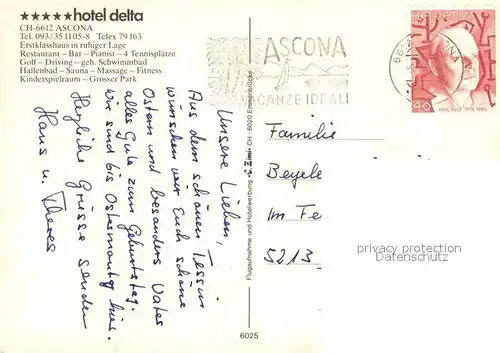 ★★★★★hotel delta
CH-6612 ASCONA
Tel. 093/35 11 05-8 Telex 79 163
Erstklasshaus in ruhiger Lage
Restaurant – Bar – Pianist – 4 Tennisplätze
Golf – Driving – geh. Schwimmbad
Hallenbad – Sauna – Massage – Fitness
Kinderspielraum – Grosser Park
Unsere Lieben,
Aus dem schönen Tessin
wünschen wir Euch schöne
Ostern und besonders Vater
alles Gute zum Geburtstag.
Wir sind bis Ostermontag hier.
Herzliche Grüsse senden
Hans u. Theres
Flugaufnahme und Hotelwerbung CH - 6020 Emmenbrücke
6025
ASCONA
VACANZE IDEALI
HELVETIA
40
Familie
Beyele
Im Fe
5213
privacy protection
Datenschutz